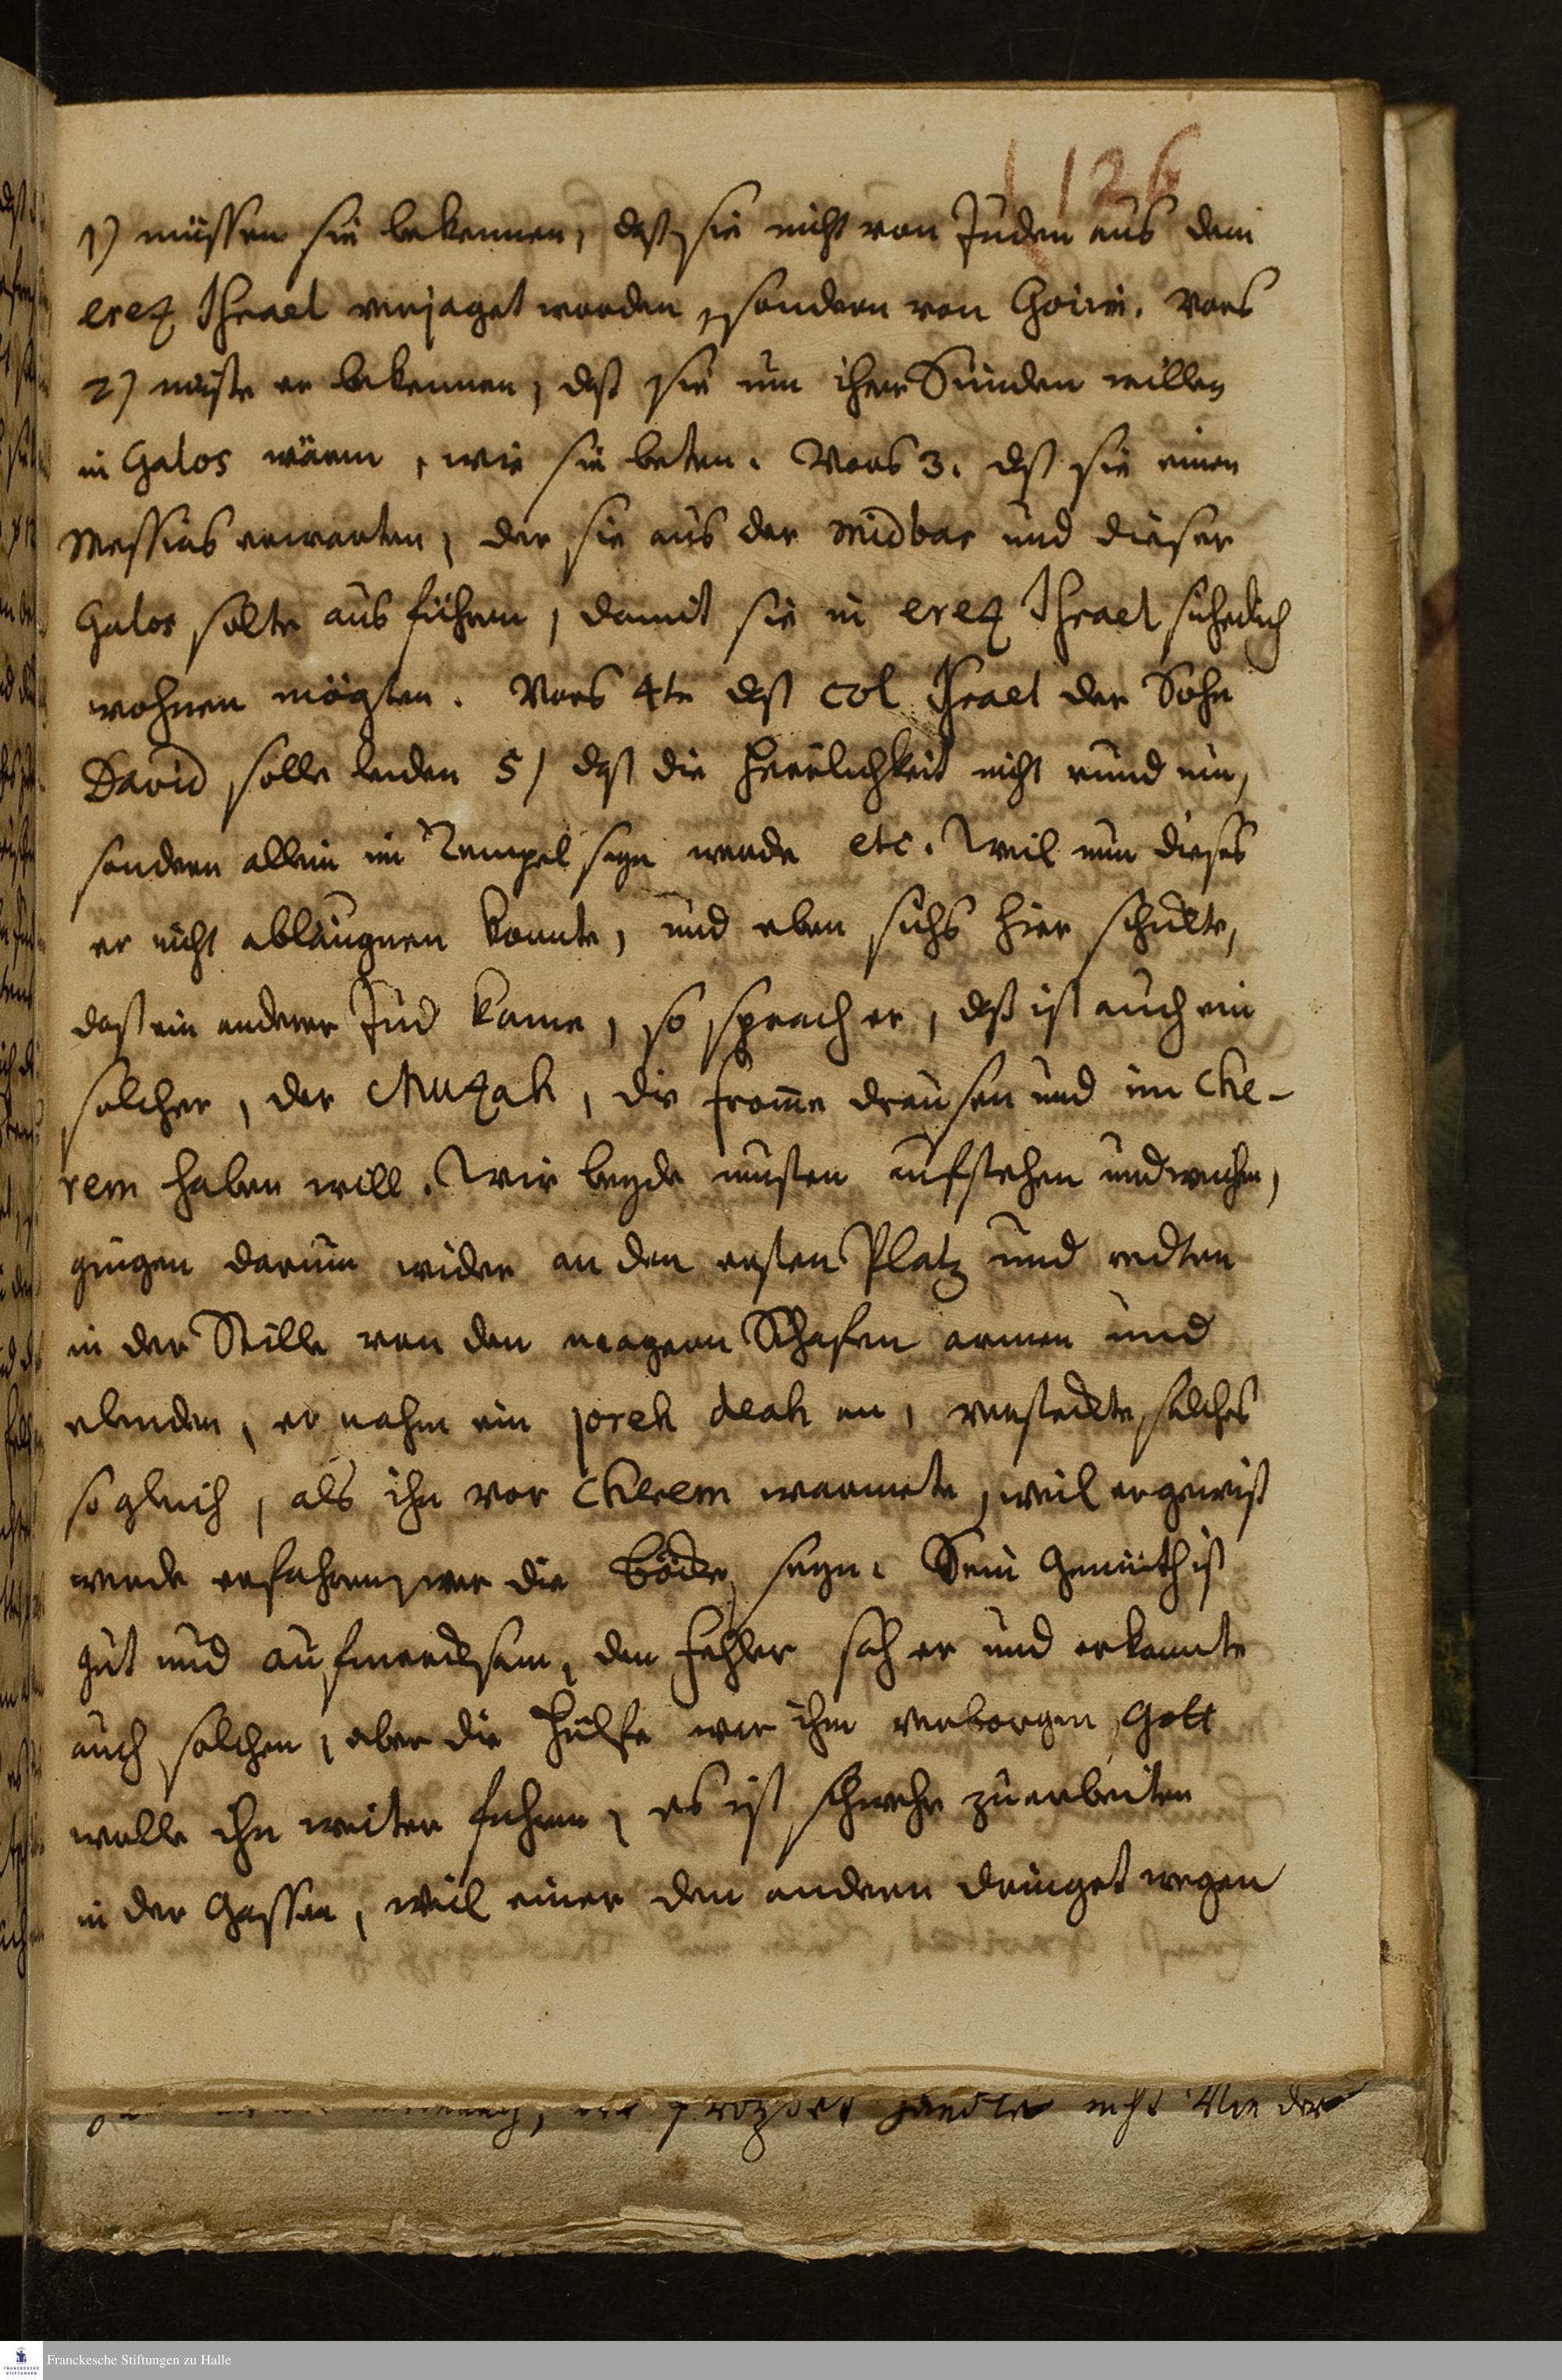 126
1) müssen sie bekennen, daß sie nicht von Juden aus dem
erez Israel verjaget worden, sondern von Goiim. Vors
2) müste er bekennen, daß sie um ihrer Sünden willen
in Galos wären, wie sie beten. Vors 3. daß sie einen
Messias erwarten, der sie aus der Midbar und dieser
Galos solte ausführen, damit sie in erez Israel sicherlich
wohnen mögten. Vors 4te daß col Israel der Sohn
David solle leiden 5) daß die Herrlichkeit nicht rund um,
sondern allein im Tempel seyn werde etc. Weil nun dieses
er nicht abläugnen konte, und eben sichs hier schickte,
daß ein anderer Jud kame, so sprach er, daß ist auch ein
solcher, der Muzah, die fromme draussen und im Che-
rem haben will. Wir beyde musten aufstehen und weichen,
gingen darum wider an den ersten Platz und redten
in der Stille von den magern Schafen armen und
elenden, er nahm ein joreh deah an, versteckte solches
sogleich, als ihn vor Cherem warnete, weil er gewiß
werde erfahren, wer die Böcke seyn. Sein Gemüth ist
gut und aufmercksam, den Fehler sah er und erkannte
auch solchen, aber die Hülfe war ihm verborgen, Gott
wolle ihn weiter führen, es ist schwehr zu arbeiten
in der Gassen, weil einer den andern dringet wegen
nicht Von der
Franckesche Stiftungen zu Halle